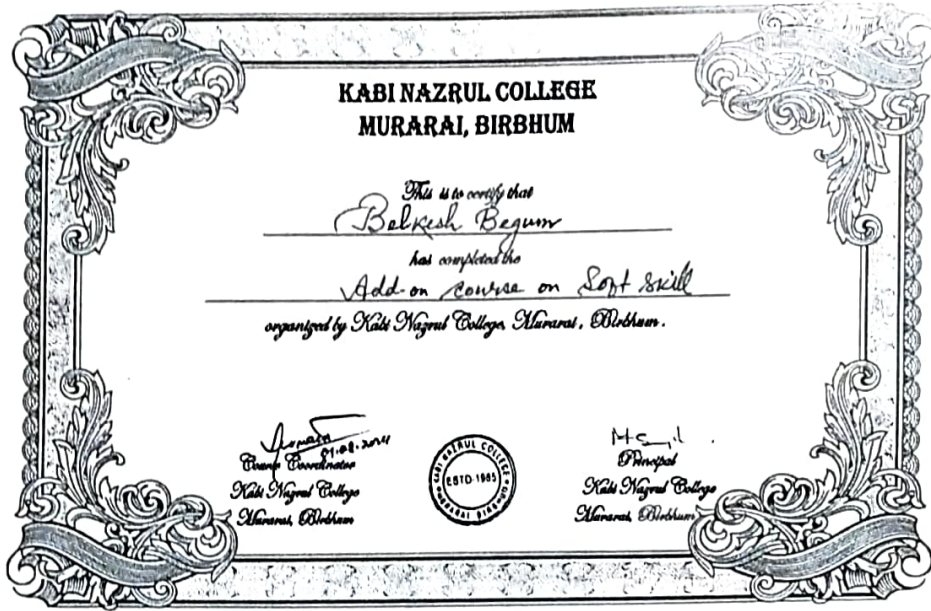 KABI NAZRUL COLLEGE
MURARAI, BIRBHUM
This is to certify that
Belkesh Begum
has completed the
Add-on course on Soft skill
organized by Kabi Nazrul College, Murarai, Birbhum.
Course Coordinator
Kabi Nazrul College
Murarai, Birbhum
KABI NAZRUL COLLEGE
ESTD-1985
MURARAI BIRBHUM
Principal
Kabi Nazrul College
Murarai, Birbhum